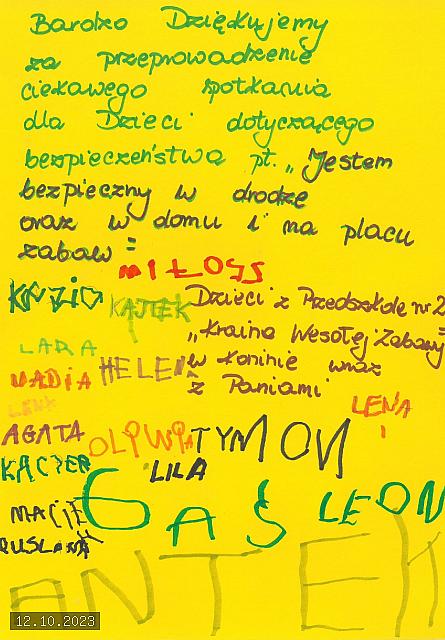 Bardzo Dziękujemy
za przeprowadzenie
ciekawego spotkania
dla Dzieci dotyczącego
bezpieczeństwa pt. „Jestem
bezpieczny w drodze
oraz w domu i na placu
zabaw"
MIŁOSZ
KAZIO KAJTEK Dzieci z Przedszkole nr 2
„Kraina Wesołej Zabawy"
LARA w Koninie wraz
NADIA HELENA z Paniami
LENA LENA
AGATA OLIWIA TYMON
KACPER LILA
GAŚ LEON
MACIEK
RUSLANA
ANTEK
12.10.2023